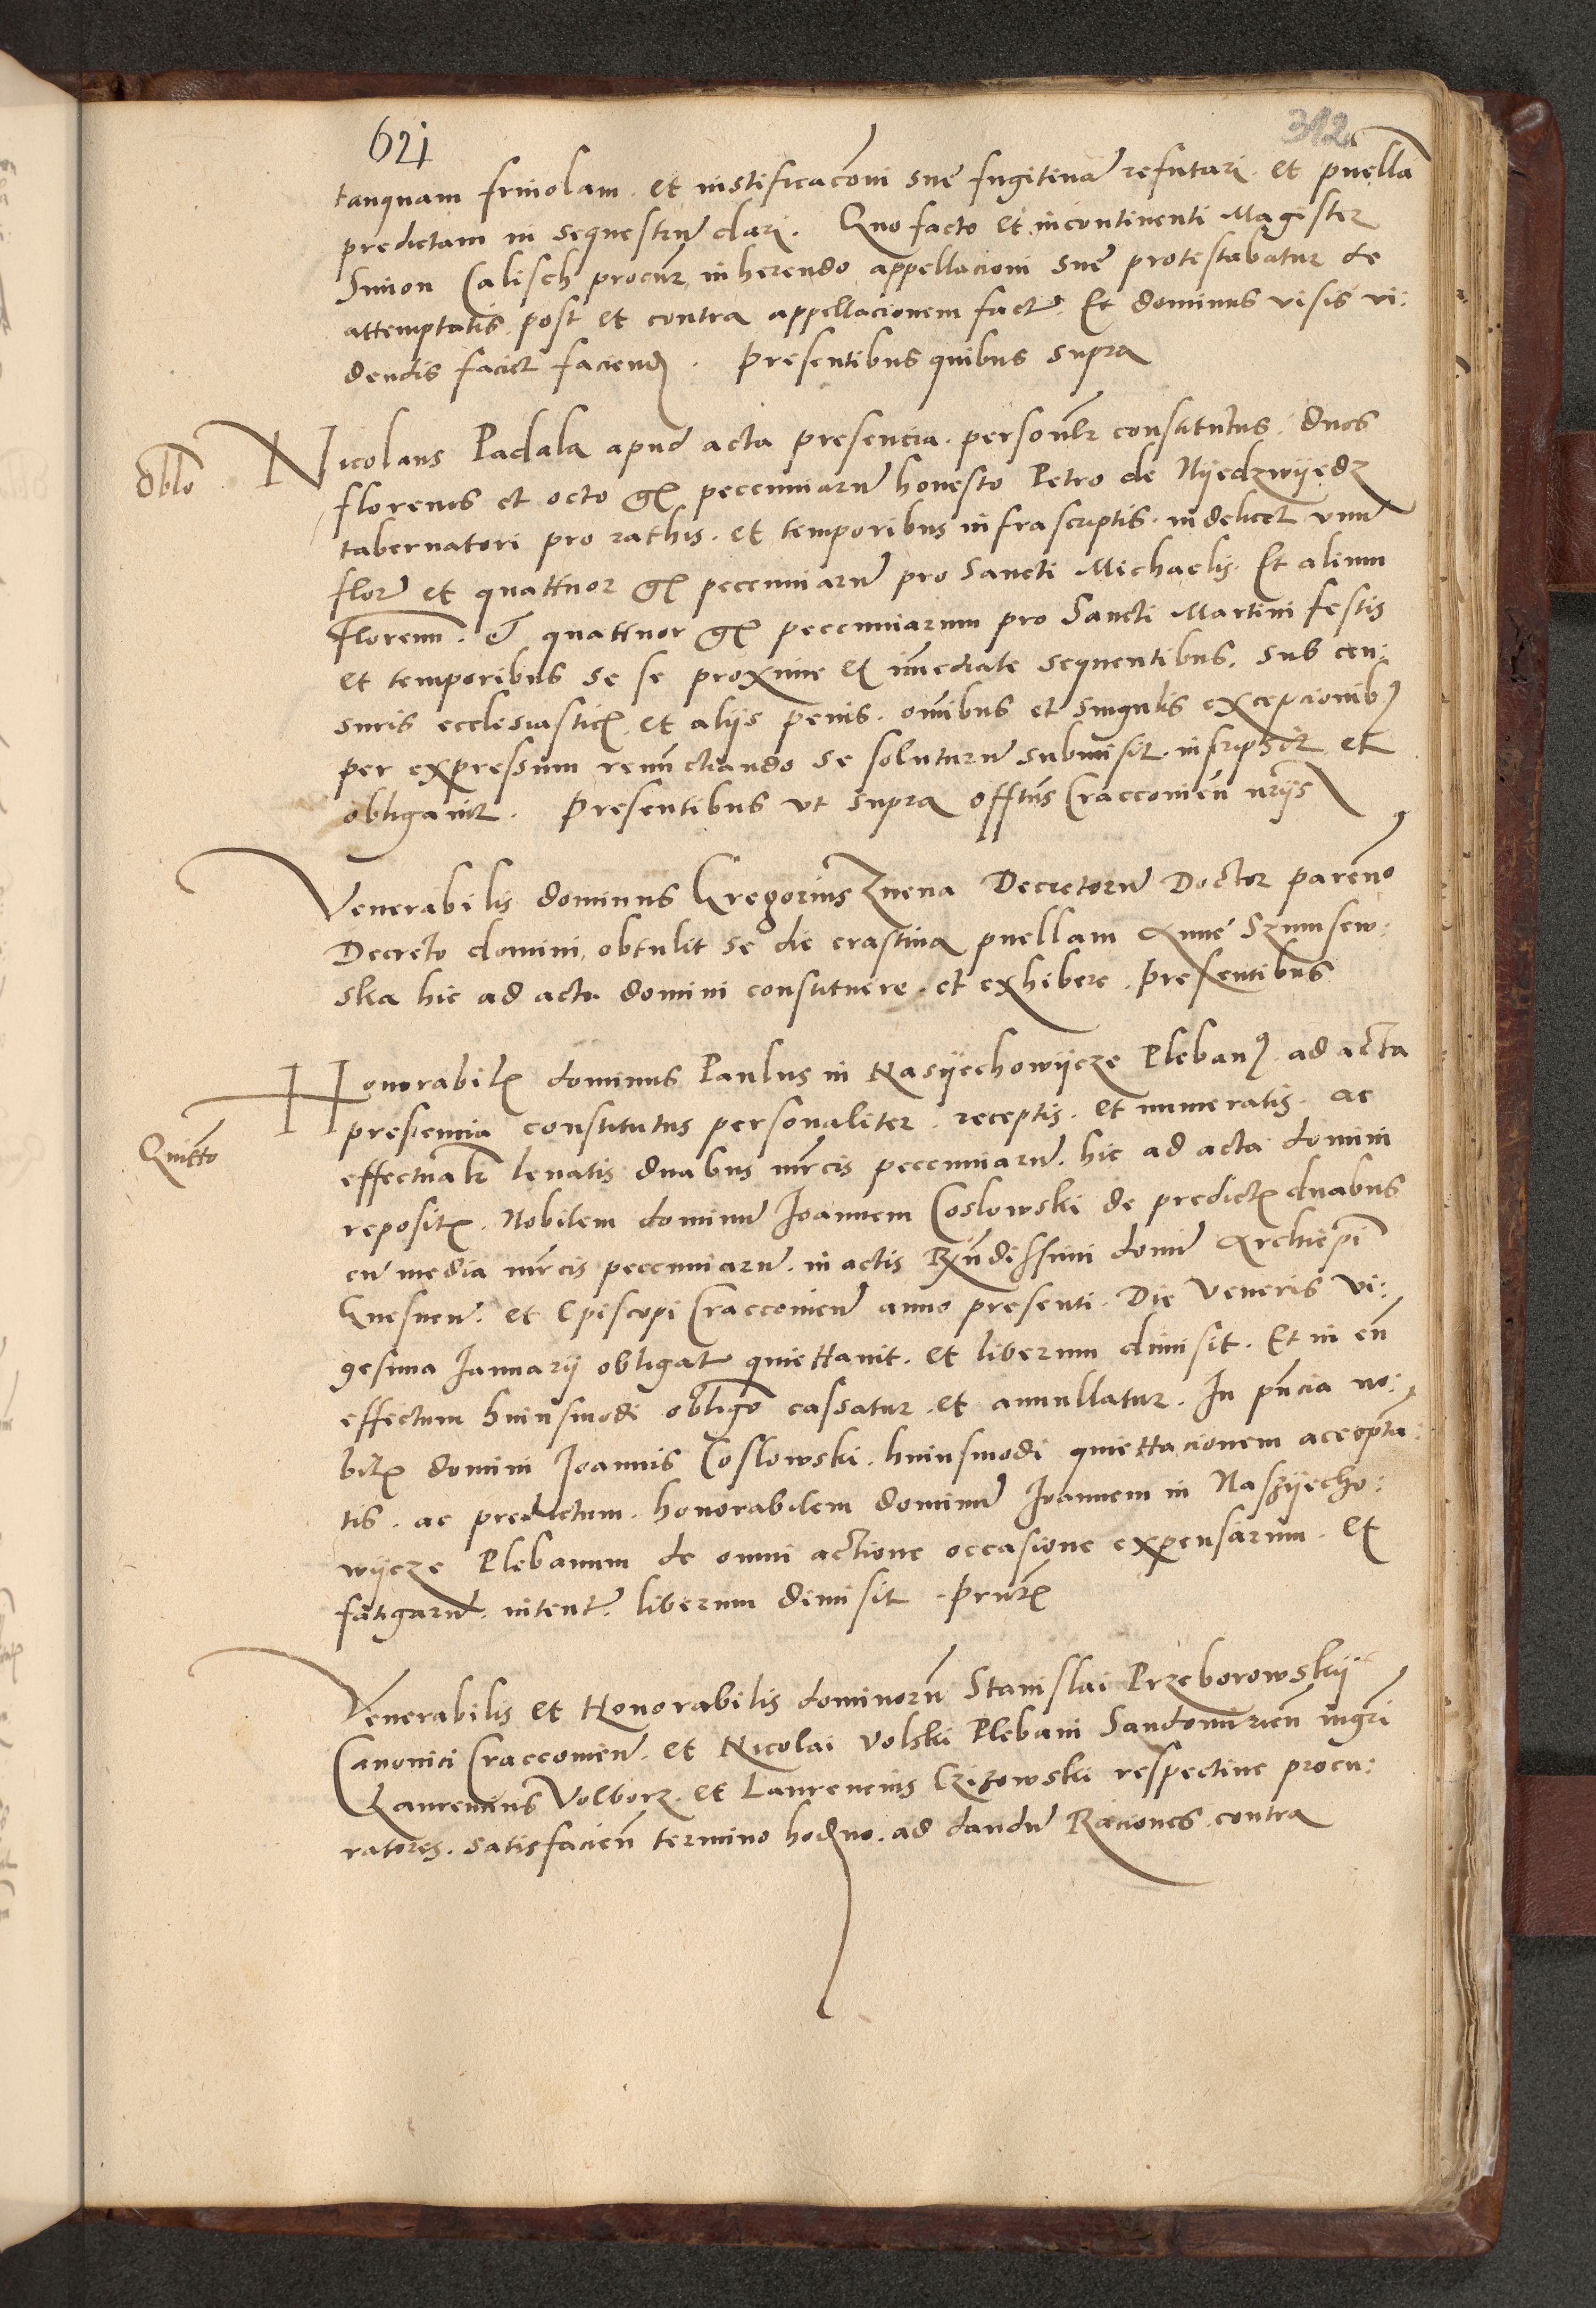 621
312
tanquam friuolam. et iustificacōni sue fugitiuā refutari. et puella
predictam in sequestrū dari. Quo facto et incontinenti Magister
Simon Calisch procūr inherendo appellacioni sue protestabatur de
attemptatis post et contra appellacionem fact. Et dominus visis vi:
dendis faciet faciend. Presentibus quibus supra
Oblo
Nicolaus Padala apud acta presencia. personlr constitutus. duos
florenos et octo gr pecuniarū honesto Petro de Nyedzwyedz
tabernatori pro rathis. et temporibus infrascriptis. videlicet vnū
flor et quattuor gr pecuniarū pro Sancti Michaelis. Et alium
Florenū. et quattuor gr pecuniarum pro Sancti Martini festis
et temporibus se se proxime et imediate sequentibus. sub cen:
suris ecclesiastic. et aliis penis. omibus et singulis excepcionib
per expressum renūctiando se soluturū submisit. inscripsit et
obligauit. Presentibus vt supra offitus Cracouien nriis
Venerabilis dominus Gregorius Decretorū Doctor parendo
Decreto domini, obtulit se die crastina puellam Anne Szumsew:
ska hic ad acta domini constituere. et exhibere. presentibus
Honorabil dominus Paulus in Nasyechowycze Pleban ad acta
Quitto
presencia constitutus personaliter. receptis. et numeratis. ac
effectualr leuatis duabus mrcis pecuniarū. hic ad acta domini
reposit. Nobilem dominū Joannem Coslowski de predict duabus
cū media mrcis pecuniarū. in actis Rndissimi domi Archiepi
Gnesnen. et Episcopi Cracouien anno presenti. Die Veneris vi:
gesima Januarij obligat quiettauit. et liberum dimisit. Et in eū
effectum huiusmodi obligo cassatur. et annullatur. In pncia no:
bil domini Joannis Coslowski. huiusmodi quiettacionem accepta:
tis. ac predictum. honorabilem dominū Joannem in Naszyecho:
wycze Plebanum de omni actione occasione expensarum. et
fatigarū. intent. liberum dimisit. Pntib
Venerabilis et Honorabilis dominorū Stanislai Przeborowskij
Canonici Cracouien. et Nicolai Volski Plebani Sandomirien mgri
Laurencius Volborz. et Laurencius Czizowski respectiue procu:
ratores. satisfacien termino hodno. ad dandū Raciones. contra